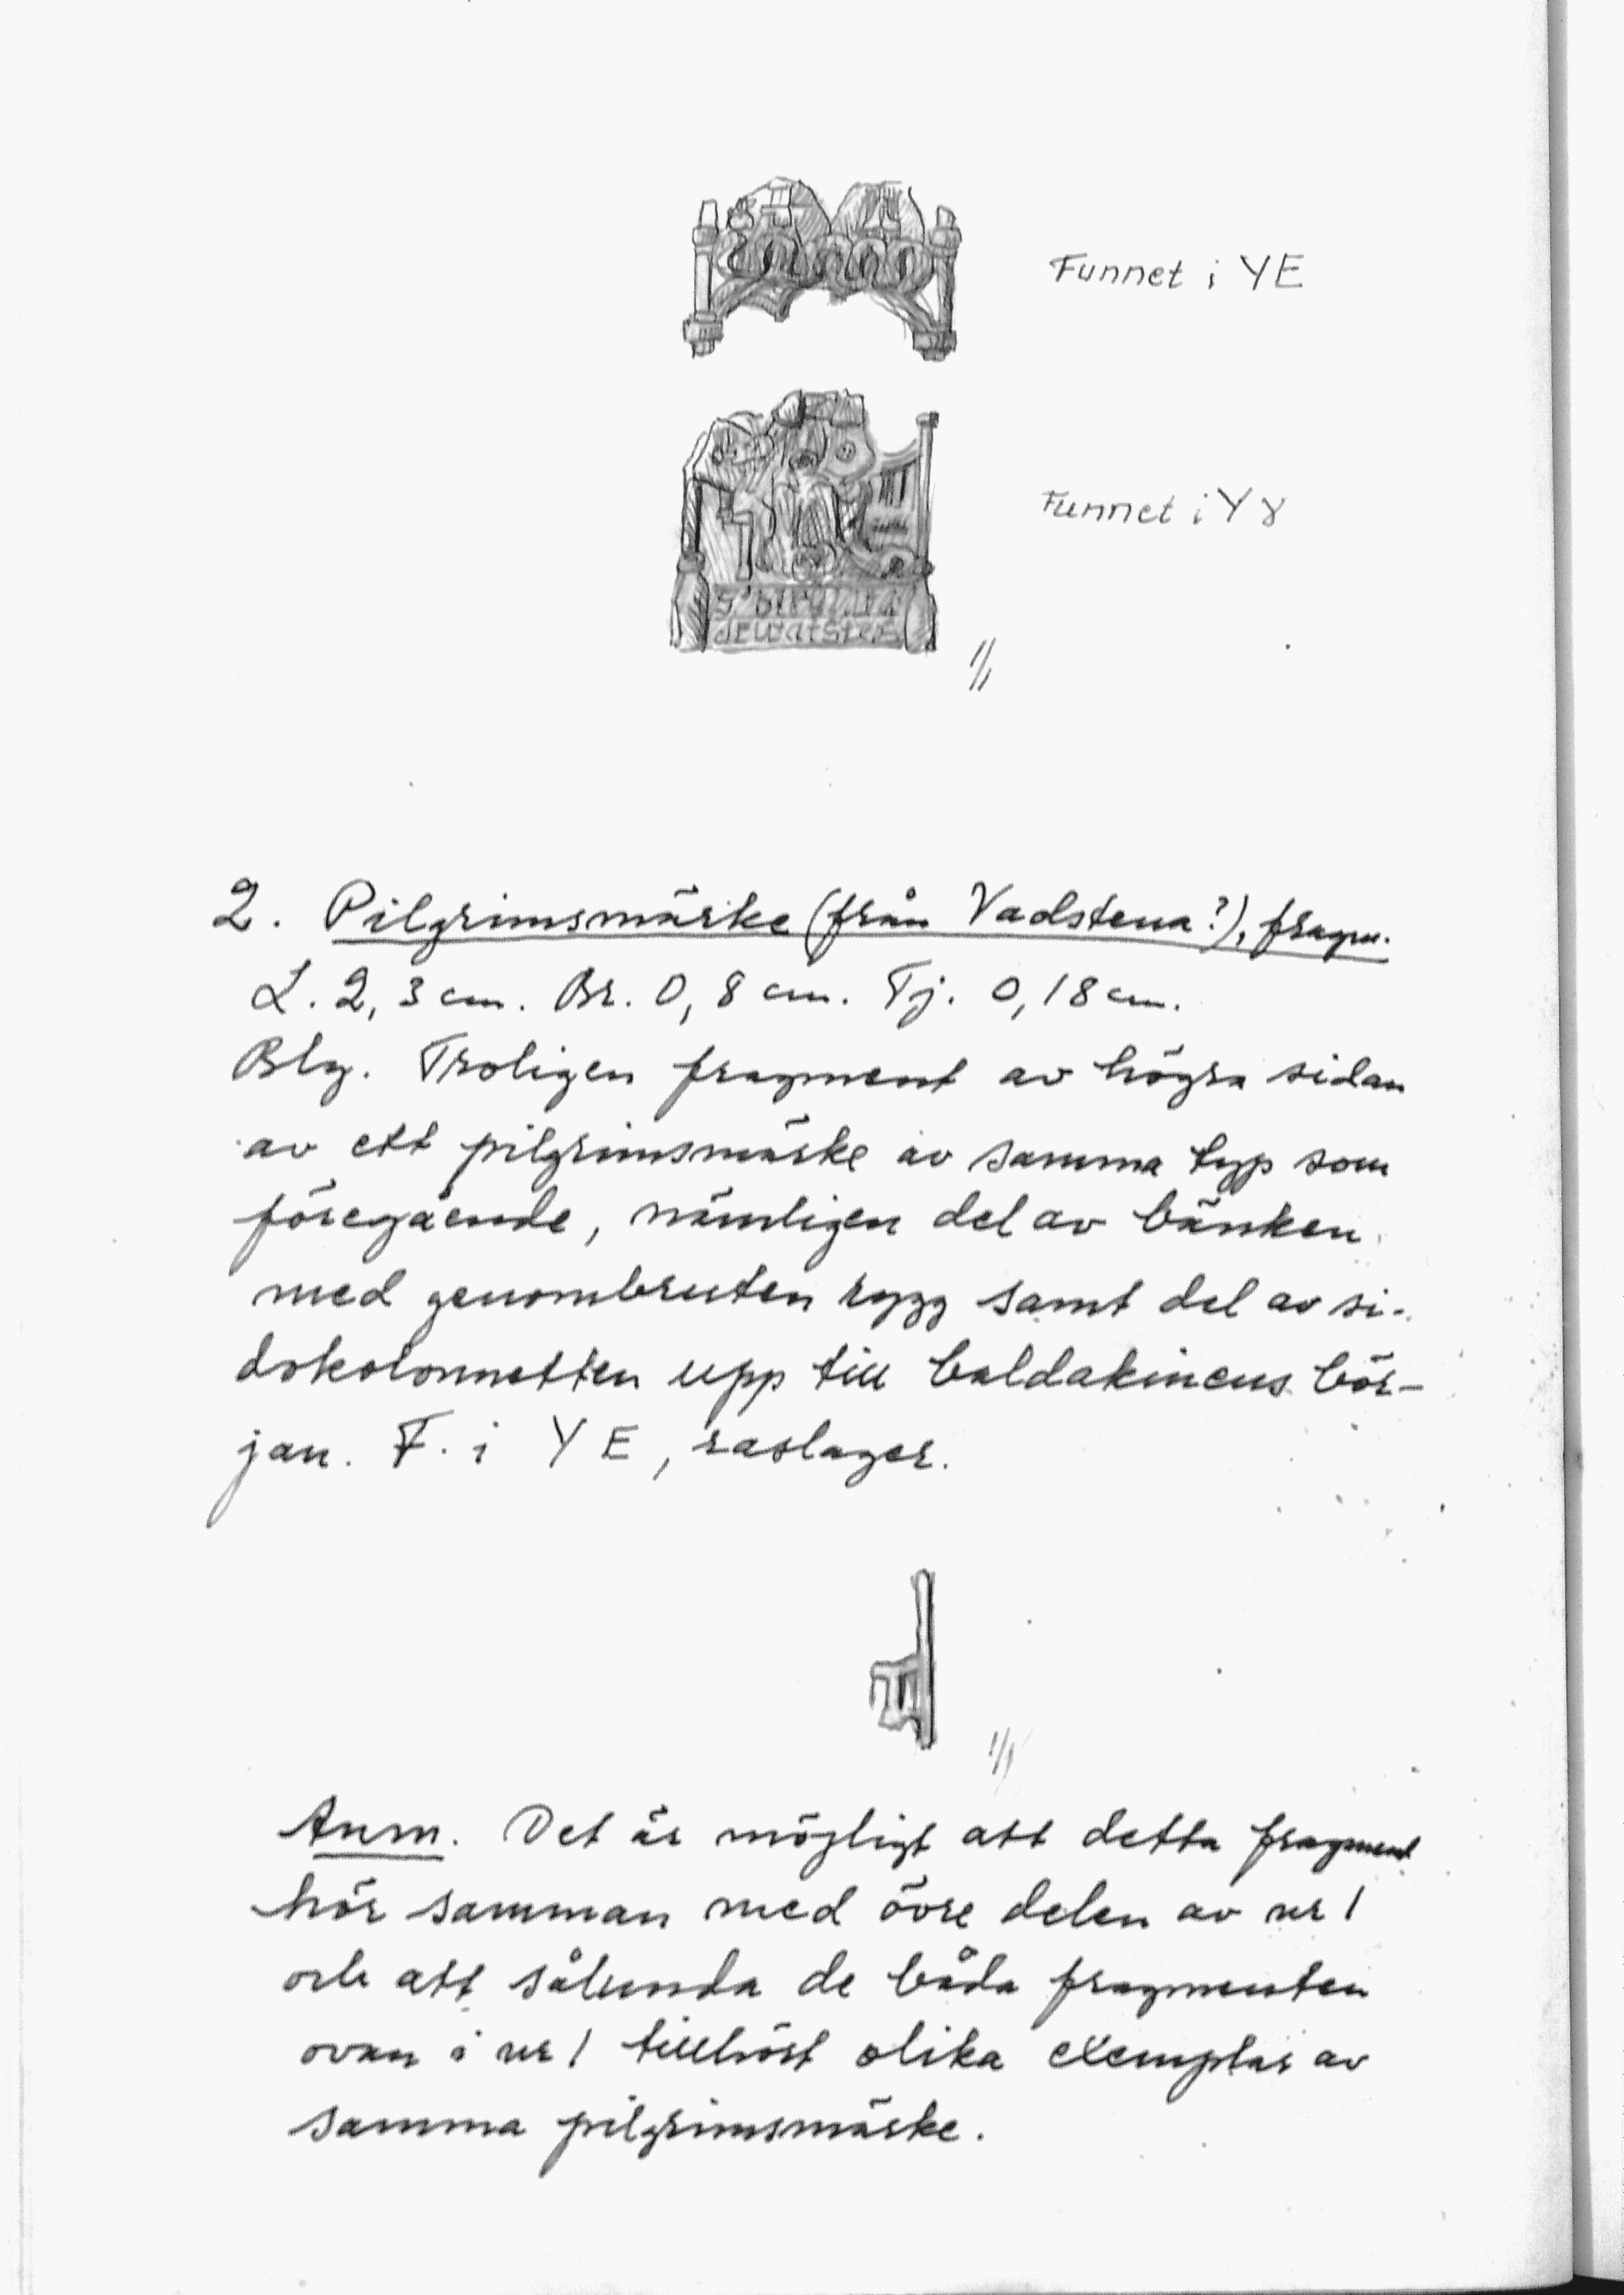 Funnet i YE
Funnet i Y8
dewatsten
1/1
2. Pilgrimsmärke (från Vadstena?), fragm.
L. 2,3 cm. Br. 0,8 cm. Tj. 0,18 cm.
Bly. Troligen fragment av högra sidan
av ett pilgrimsmärke av samma typ som
föregående, nämligen del av bänken
med genombruten rygg samt del av si-
dokolonnetten upp till baldakinens bör-
jan. F. i YE, raslager.
1/1
Anm. Det är möjligt att detta fragment
hör samman med övre delen av nr 1
och att sålunda de båda fragmenten
ovan i nr 1 tillhört olika exemplar av
samma pilgrimsmärke.